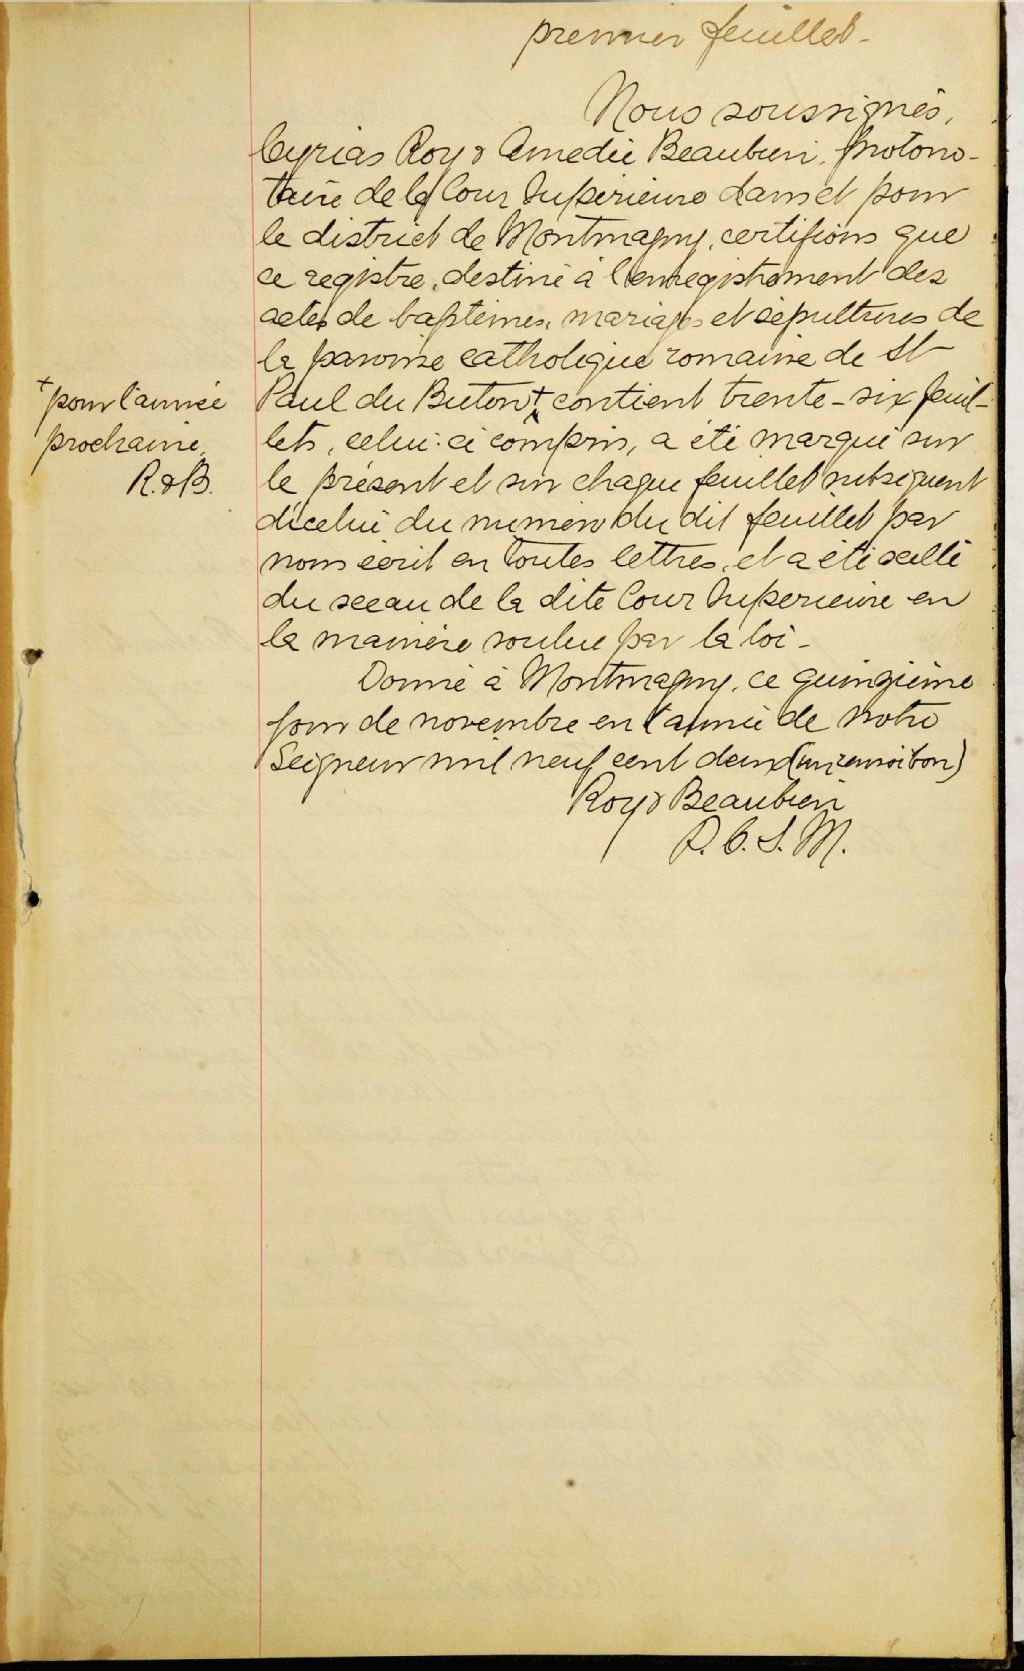 premier feuillet -
Nous soussignés,
Cyrias Roy & Amedée Beaubien, Protono-
taire de la Cour Supérieure dans et pour
le district de Montmagny, certifions que
ce registre, destiné à l'enregistrement des
actes de baptêmes, mariages et sépultures de
la paroisse catholique romaine de St
+ pour l'année
Paul du Buton + contient trente-six feuil-
prochaine,
lets, celui-ci compris, a été marqué sur
R. & B.
le présent et sur chaque feuillet subséquent
d'icelui du numéro du dit feuillet par
nous écrit en toutes lettres, et a été scellé
du sceau de la dite Cour Supérieure en
la manière voulue par la loi -
Donné à Montmagny, ce quinzième
jour de novembre en l'année de notre
Seigneur mil neuf cent deux (un renvoi bon)
Roy & Beaubien
P. C. S. M.